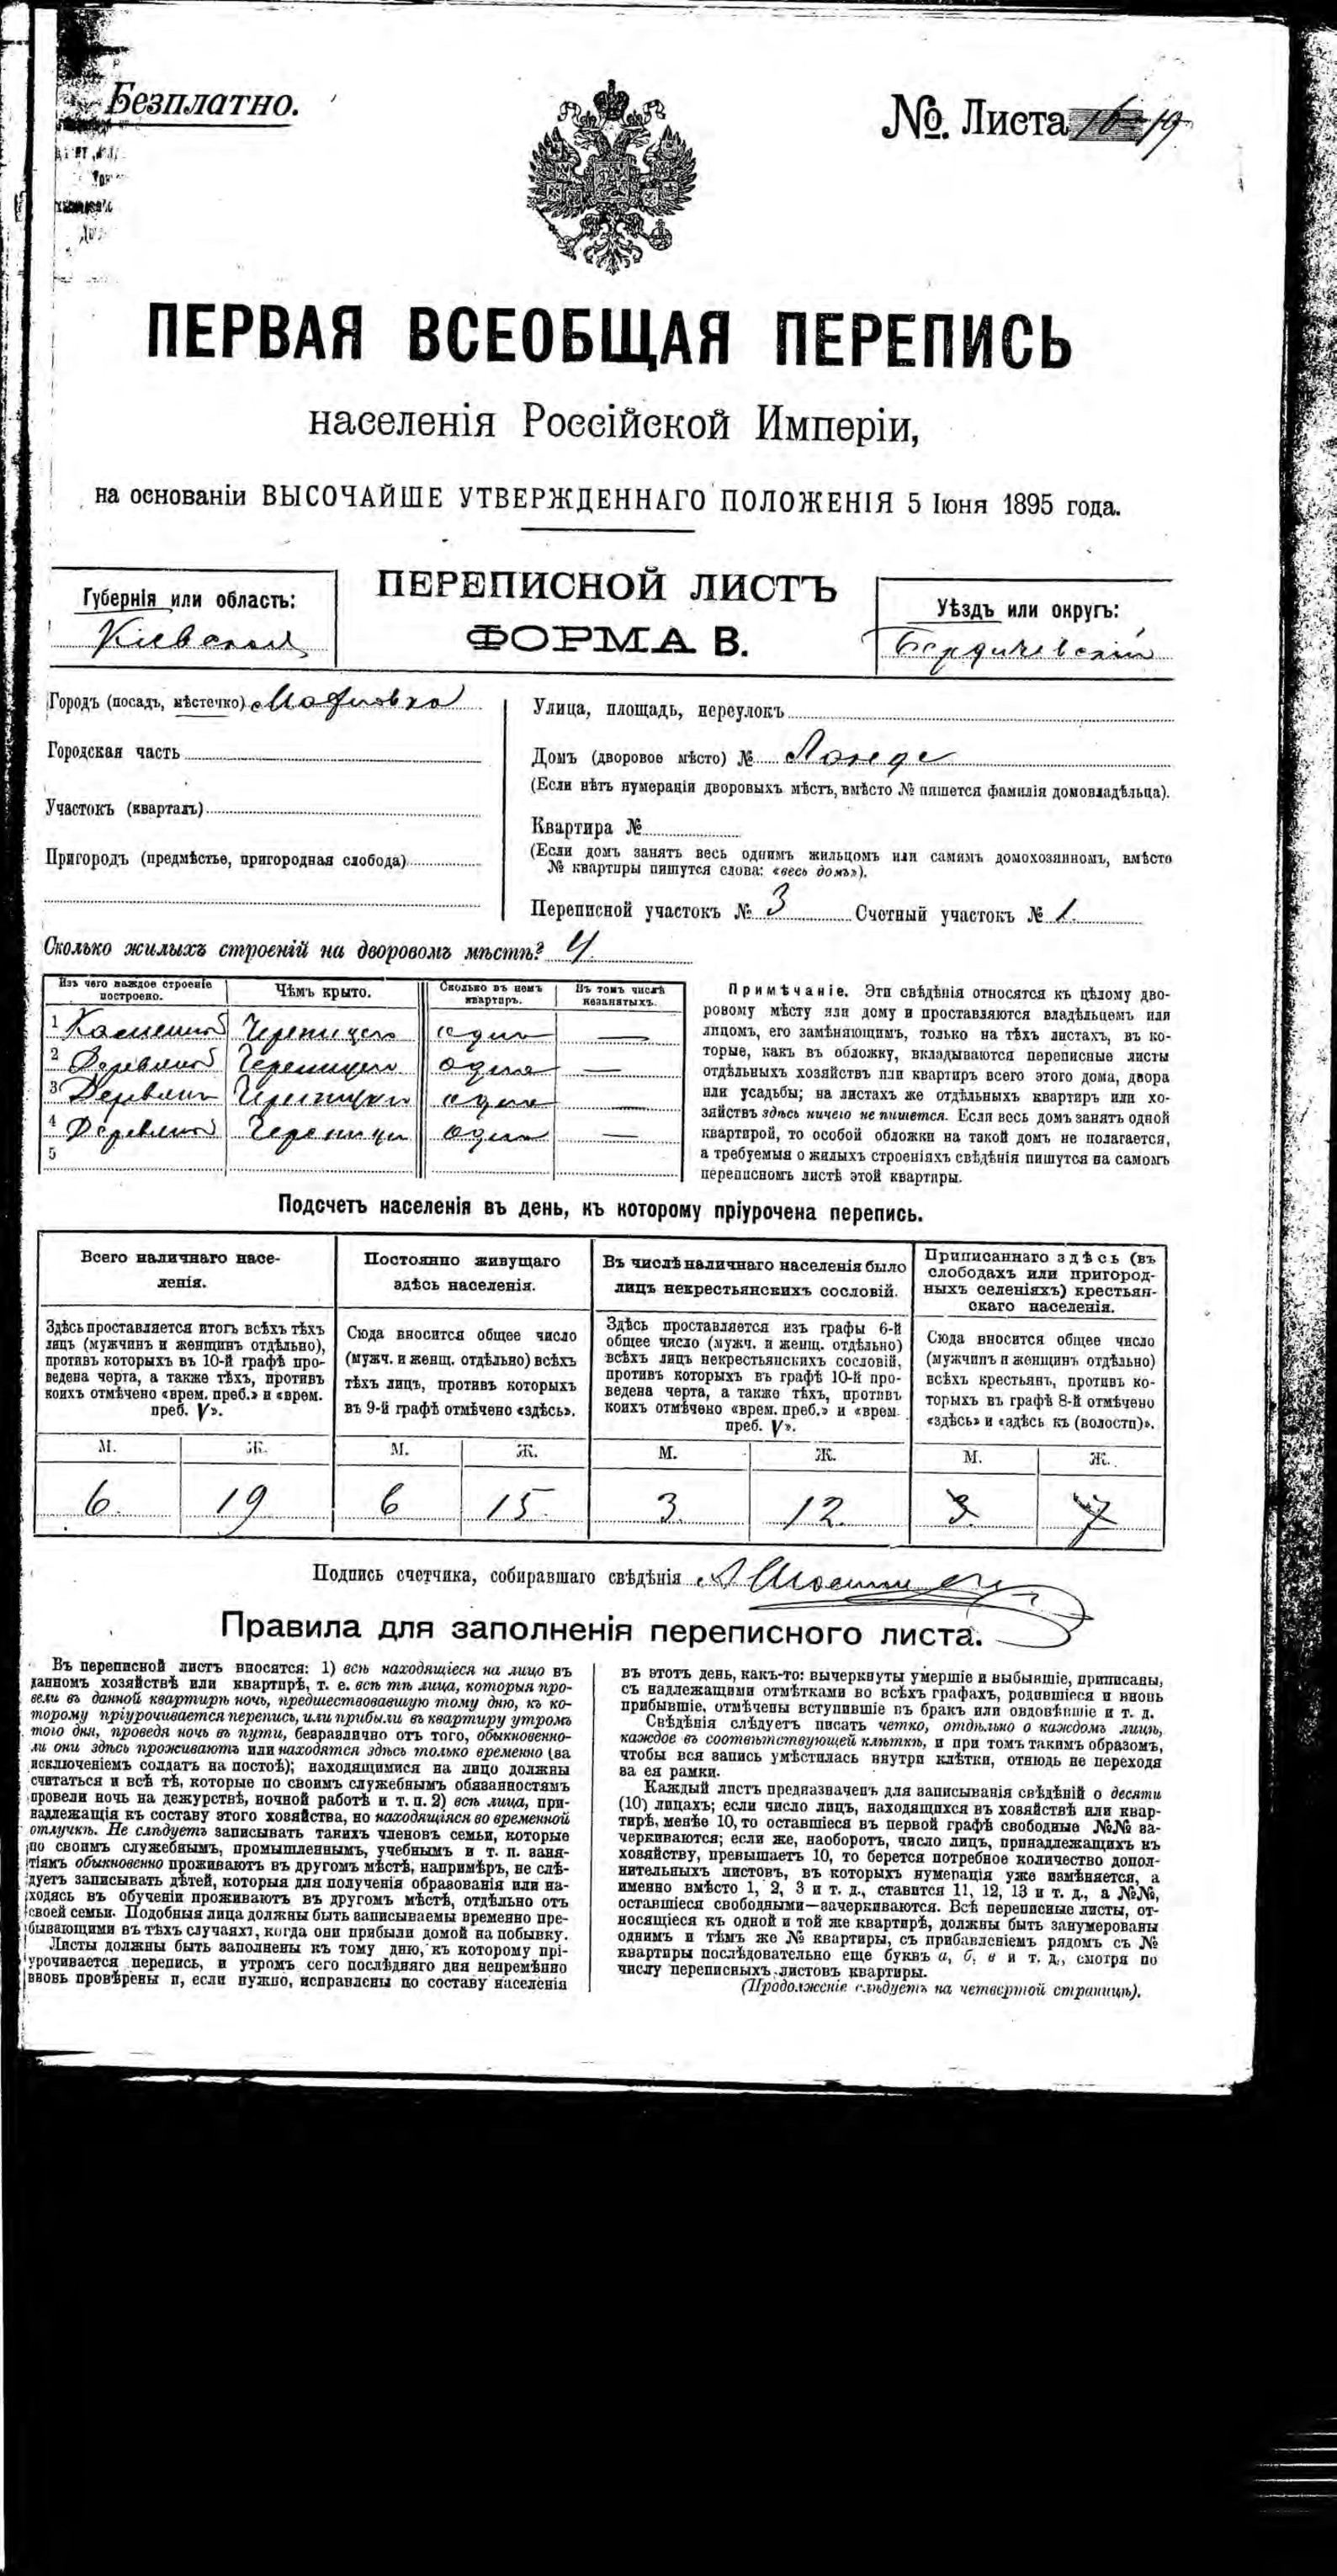 Безплатно.
№. Листа 16 19
ПЕРВАЯ ВСЕОБЩАЯ ПЕРЕПИСЬ
населенія Россійской Имперіи,
на основаніи ВЫСОЧАЙШЕ УТВЕРЖДЕННАГО ПОЛОЖЕНІЯ 5 Іюня 1895 года.
Губернія или область:
Кіевская
ПЕРЕПИСНОЙ ЛИСТЪ
ФОРМА В.
Уѣздъ или округъ:
Бердичевскій
Городъ (посадъ, мѣстечко)
Городская часть
Участокъ (кварталъ)
Пригородъ (предмѣстье, пригородная слобода)
Улица, площадь, переулокъ
Домъ (дворовое мѣсто) № Ланде
(Если нѣтъ нумераціи дворовыхъ мѣстъ, вмѣсто № пишется фамилія домовладѣльца).
Квартира №
(Если домъ занятъ весь однимъ жильцомъ или самимъ домохозяиномъ, вмѣсто
№ квартиры пишутся слова: «весь домъ»).
Переписной участокъ № 3 Счетный участокъ № 1.
Сколько жилыхъ строеній на дворовомъ мѣстѣ? 4.
Изъ чего каждое строеніе
построено.
Чѣмъ крыто.
Сколько въ немъ
квартиръ.
Въ томъ числѣ
незанятыхъ.
1 Каменный Черепицею один —
2 Деревяной Черепицею один —
3 Деревян Черепицею один —
4 Деревяной Черепицею один —
5
Примѣчаніе. Эти свѣдѣнія относятся къ цѣлому дво-
ровому мѣсту или дому и проставляются владѣльцемъ или
лицомъ, его замѣняющимъ, только на тѣхъ листахъ, въ ко-
торые, какъ въ обложку, вкладываются переписные листы
отдѣльныхъ хозяйствъ или квартиръ всего этого дома, двора
или усадьбы; на листахъ же отдѣльныхъ квартиръ или хо-
зяйствъ здѣсь ничего не пишется. Если весь домъ занятъ одной
квартирой, то особой обложки на такой домъ не полагается,
а требуемыя о жилыхъ строеніяхъ свѣдѣнія пишутся на самомъ
переписномъ листѣ этой квартиры.
Подсчетъ населенія въ день, къ которому пріурочена перепись.
Всего наличнаго насе-
ленія.
Постоянно живущаго
здѣсь населенія.
Въ числѣ наличнаго населенія было
лицъ некрестьянскихъ сословій.
Приписаннаго здѣсь (въ
слободахъ или пригород-
ныхъ селеніяхъ) крестьян-
скаго населенія.
Здѣсь проставляется итогъ всѣхъ тѣхъ
лицъ (мужчинъ и женщинъ отдѣльно),
противъ которыхъ въ 10-й графѣ про-
ведена черта, а также тѣхъ, противъ
коихъ отмѣчено «врем. преб.» и «врем.
преб. V».
Сюда вносится общее число
(мужч. и женщ. отдѣльно) всѣхъ
тѣхъ лицъ, противъ которыхъ
въ 9-й графѣ отмѣчено «здѣсь».
Здѣсь проставляется изъ графы 6-й
общее число (мужч. и женщ. отдѣльно)
всѣхъ лицъ некрестьянскихъ сословій,
противъ которыхъ въ графѣ 10-й про-
ведена черта, а также тѣхъ, противъ
коихъ отмѣчено «врем. преб.» и «врем.
преб. V».
Сюда вносится общее число
(мужчинъ и женщинъ отдѣльно)
всѣхъ крестьянъ, противъ ко-
торыхъ въ графѣ 8-й отмѣчено
«здѣсь» и «здѣсь къ (волости)».
М. Ж. М. Ж. М. Ж. М. Ж.
6. 19 6 15 3. 12. 3 7
Подпись счетчика, собиравшаго свѣдѣнія
Правила для заполненія переписного листа.
Въ переписной листъ вносятся: 1) всѣ находящіеся на лицо въ
данномъ хозяйствѣ или квартирѣ, т. е. всѣ тѣ лица, которыя про-
вели въ данной квартирѣ ночь, предшествовавшую тому дню, къ ко-
торому пріурочивается перепись, или прибыли въ квартиру утромъ
того дня, проведя ночь въ пути, безразлично отъ того, обыкновенно-
ли они здѣсь проживаютъ или находятся здѣсь только временно (за
исключеніемъ солдатъ на постоѣ); находящимися на лицо должны
считаться и всѣ тѣ, которые по своимъ служебнымъ обязанностямъ
провели ночь на дежурствѣ, ночной работѣ и т. п. 2) всѣ лица, при-
надлежащія къ составу этого хозяйства, но находящіяся во временной
отлучкѣ. Не слѣдуетъ записывать такихъ членовъ семьи, которые
по своимъ служебнымъ, промышленнымъ, учебнымъ и т. п. заня-
тіямъ обыкновенно проживаютъ въ другомъ мѣстѣ, напримѣръ, не слѣ-
дуетъ записывать дѣтей, которыя для полученія образованія или на-
ходясь въ обученіи проживаютъ въ другомъ мѣстѣ, отдѣльно отъ
своей семьи. Подобныя лица должны быть записываемы временно пре-
бывающими въ тѣхъ случаяхъ, когда они прибыли домой на побывку.
Листы должны быть заполнены къ тому дню, къ которому прі-
урочивается перепись, и утромъ сего послѣдняго дня непремѣнно
вновь провѣрены и, если нужно, исправлены по составу населенія
въ этотъ день, какъ-то: вычеркнуты умершіе и выбывшіе, приписаны,
съ надлежащими отмѣтками во всѣхъ графахъ, родившіеся и вновь
прибывшіе, отмѣчены вступившіе въ бракъ или овдовѣвшіе и т. д.
Свѣдѣнія слѣдуетъ писать четко, отдѣльно о каждомъ лицѣ,
каждое въ соотвѣтствующей клѣткѣ, и при томъ такимъ образомъ,
чтобы вся запись умѣстилась внутри клѣтки, отнюдь не переходя
за ея рамки.
Каждый листъ предназначенъ для записыванія свѣдѣній о десяти
(10) лицахъ; если число лицъ, находящихся въ хозяйствѣ или квар-
тирѣ, менѣе 10, то оставшіеся въ первой графѣ свободные №№ за-
черкиваются; если же, наоборотъ, число лицъ, принадлежащихъ къ
хозяйству, превышаетъ 10, то берется потребное количество допол-
нительныхъ листовъ, въ которыхъ нумерація уже измѣняется, а
именно вмѣсто 1, 2, 3 и т. д., ставится 11, 12, 13 и т. д., а №№,
оставшіеся свободными—зачеркиваются. Всѣ переписные листы, от-
носящіеся къ одной и той же квартирѣ, должны быть занумерованы
однимъ и тѣмъ же № квартиры, съ прибавленіемъ рядомъ съ №
квартиры послѣдовательно еще буквъ а, б, в и т. д., смотря по
числу переписныхъ листовъ квартиры.
(Продолженіе слѣдуетъ на четвертой страницѣ).